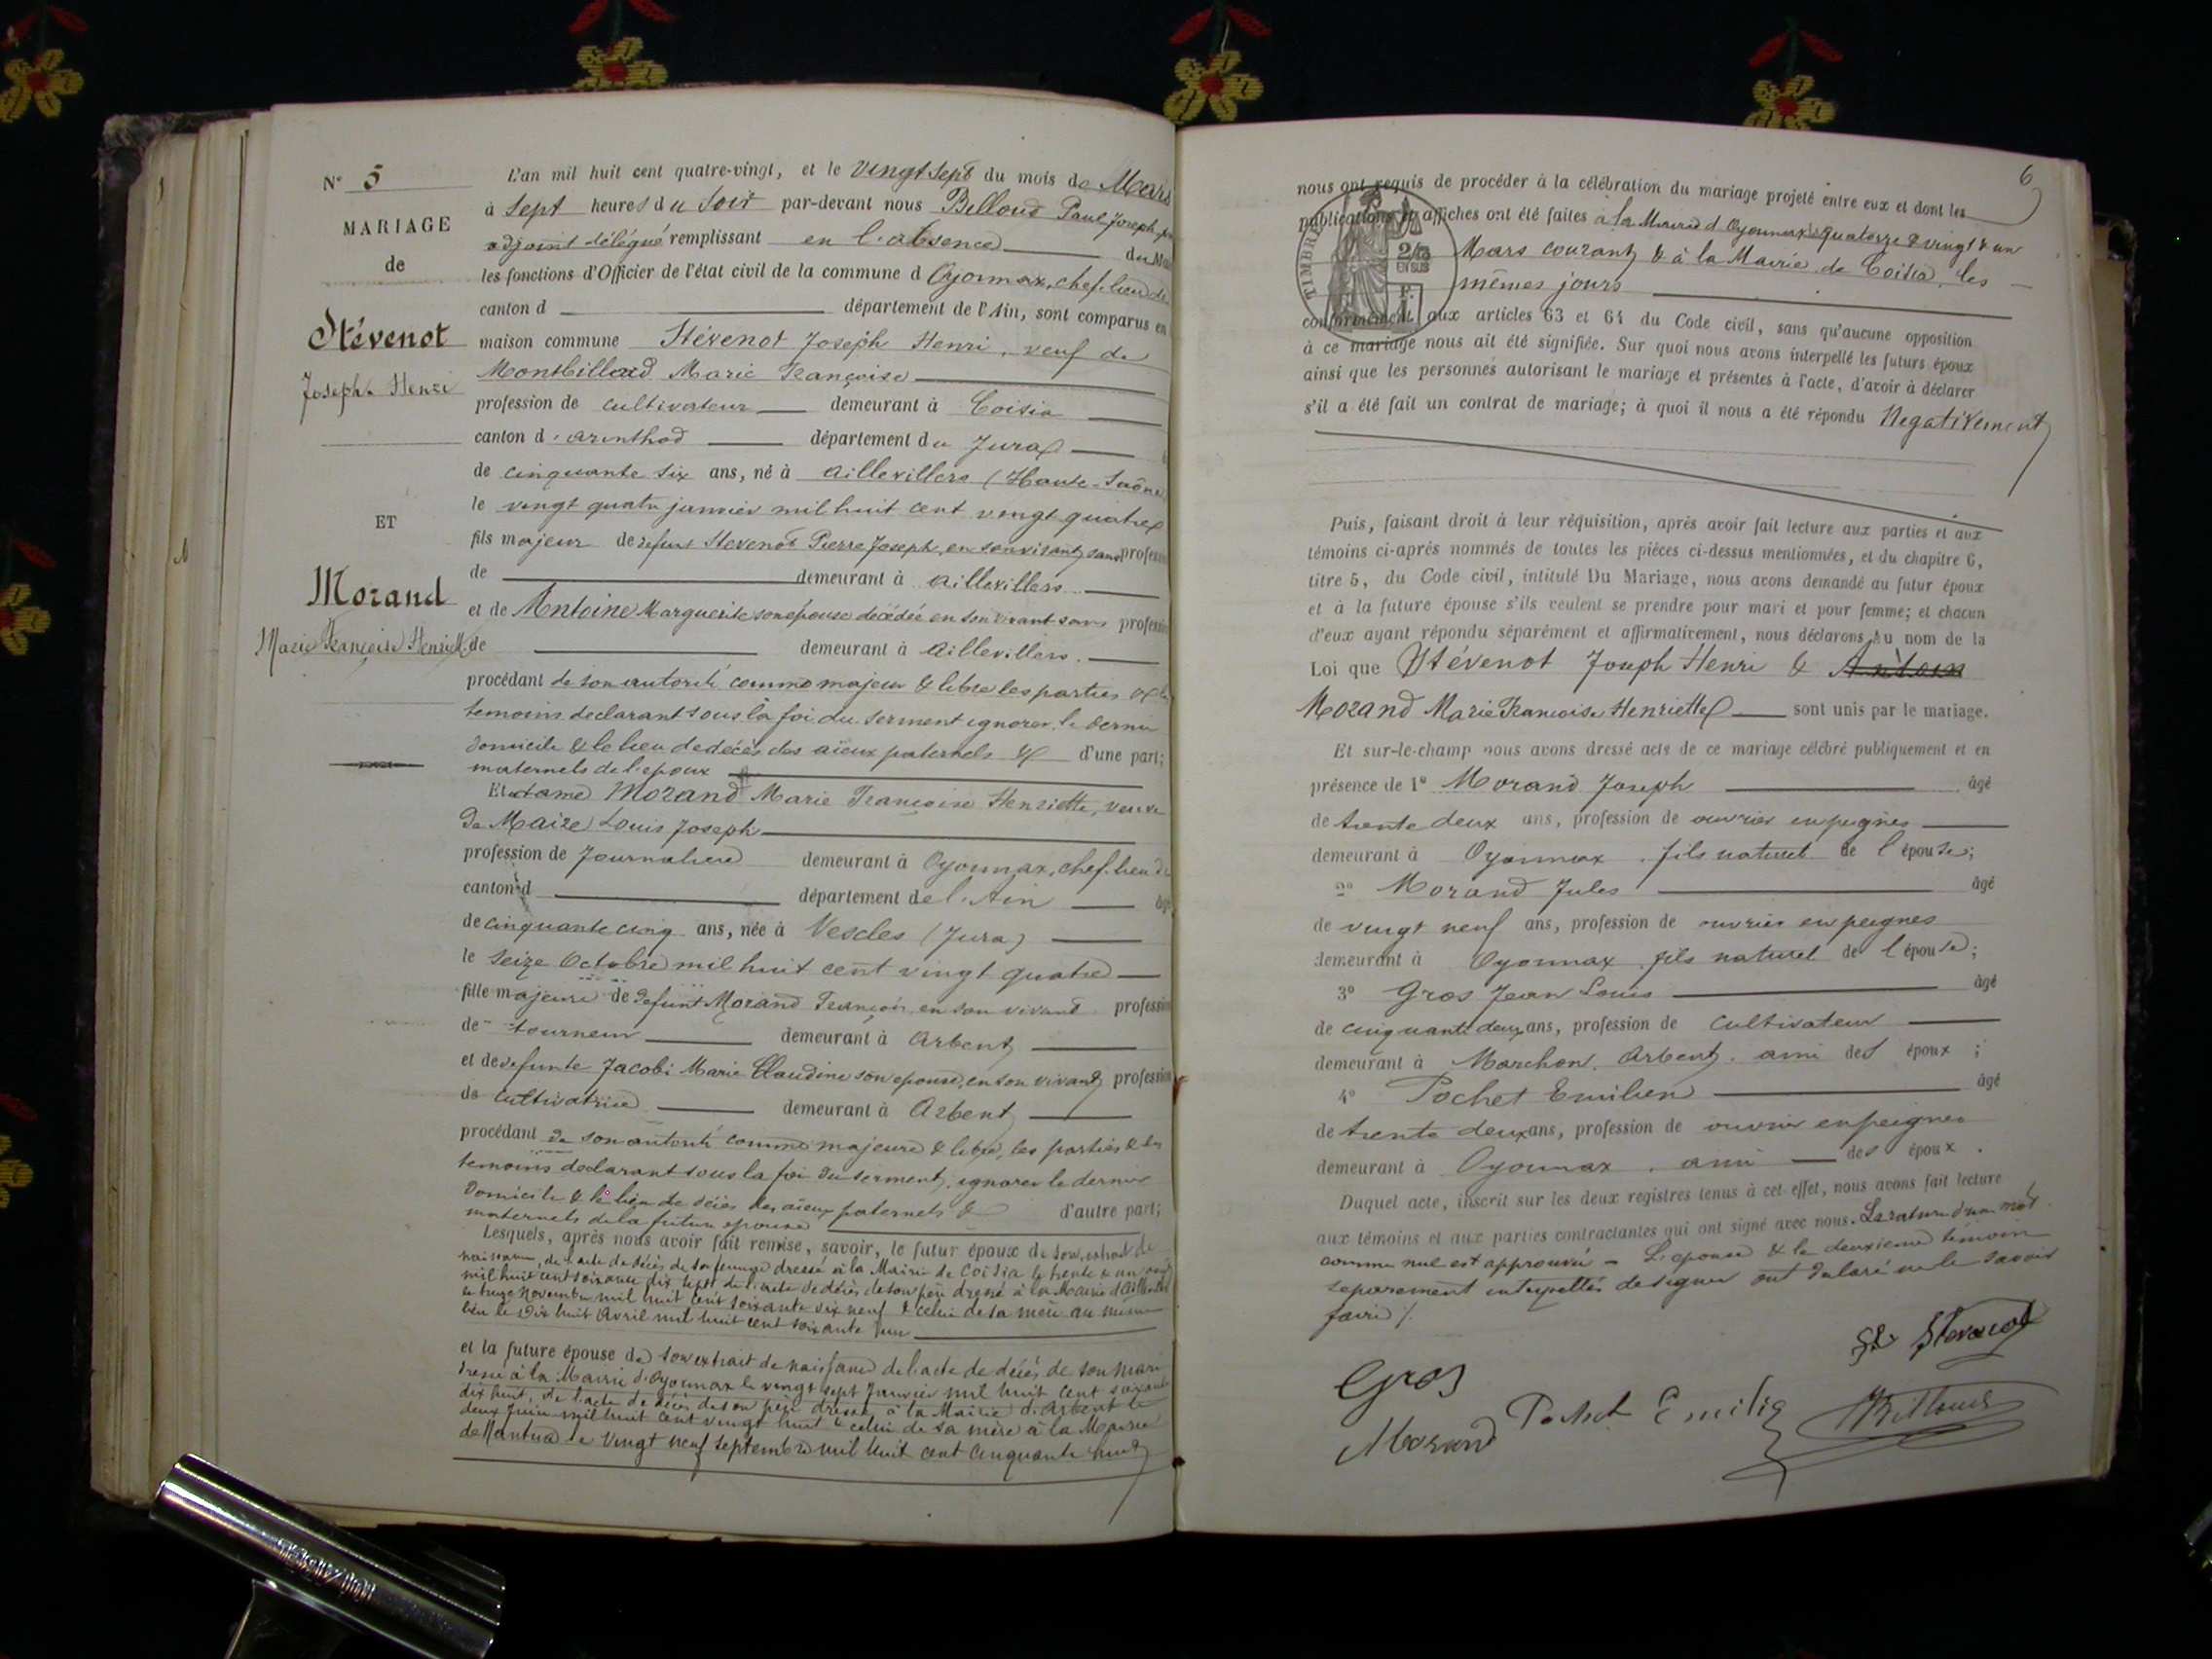 N° 5
MARIAGE
de
Stévenot
Joseph Henri
ET
Morand
Marie Françoise Henriette
L'an mil huit cent quatre-vingt, et le vingt sept du mois de Mars
à sept heures du soir par-devant nous Belloud Paul Joseph
adjoint délégué remplissant en l'absence du
les fonctions d'Officier de l'état civil de la commune d Oyonnax, chef-lieu de
canton d département de l'Ain, sont comparus en
maison commune Stévenot Joseph Henri, veuf de
Montbilland Marie Françoise
profession de cultivateur demeurant à Coisia
canton d'arinthod département du Jura
de cinquante six ans, né à aillevillers (Haute-Saône
le vingt quatre janvier mil huit cent vingt quatre
fils majeur de defunt Stevenot Pierre Joseph, en son vivant, sans profession
de demeurant à aillevillers
et de Antoine Marguerite son épouse décédée en son vivant sans profession
de demeurant à aillevillers.
procédant de son autorité comme majeur & libre les parties & les
temoins declarant sous la foi du serment ignorer le dernier
domicile & le lieu de décès des aïeux paternels & d'une part;
maternels de l'epoux
Et dame Morand Marie Françoise Henriette, veuve
de Maize Louis Joseph
profession de Journaliere demeurant à Oyonnax, chef-lieu de
canton d département de l'Ain
de cinquante cinq ans, née à Vescles (Jura)
le seize Octobre mil huit cent vingt quatre
fille majeure de defunt Morand François, en son vivant profession
de tourneur demeurant à Arbent
et de defunte Jacobi Marie Claudine son epouse, en son vivant profession
de cultivatrice demeurant à Arbent
procédant de son autorité comme majeure & libre, les parties & les
temoins declarant sous la foi du serment, ignorer le dernier
domicile & le lieu de décès des aïeux paternels & d'autre part;
maternels de la future epouse
Lesquels, après nous avoir fait remise, savoir, le futur époux de son extrait de
naissance, de l'acte de décès de sa femme dressé à la Mairie de Coisia le trente & un
mil huit cent soixante dix sept de l'acte de décès de son père dressé à la Mairie d'aillevillers
le treize Novembre mil huit cent soixante dix neuf & celui de sa mère au même
lieu le dix huit Avril mil huit cent soixante
et la future épouse de son extrait de naissance de l'acte de décès de son mari
dressé à la Mairie d'Oyonnax le vingt sept Janvier mil huit cent soixante
dix huit, de l'acte de décès de son père dressé à la Mairie d'Arbent le
deux Juin mil huit cent vingt huit & celui de sa mère à la Mairie
de Nantua le vingt neuf septembre mil huit cent cinquante huit
6
nous ont requis de procéder à la célébration du mariage projeté entre eux et dont les
publications et affiches ont été faites à la Mairie d'Oyonnax les quatorze & vingt & un
Mars courant & à la Mairie de Coisia, les
mêmes jours
TIMBRE
2/10
EN SUS
conformément aux articles 63 et 64 du Code civil, sans qu'aucune opposition
à ce mariage nous ait été signifiée. Sur quoi nous avons interpellé les futurs époux
ainsi que les personnes autorisant le mariage et présentes à l'acte, d'avoir à déclarer
s'il a été fait un contrat de mariage; à quoi il nous a été répondu Negativement
Puis, faisant droit à leur réquisition, après avoir fait lecture aux parties et aux
témoins ci-après nommés de toutes les pièces ci-dessus mentionnées, et du chapitre 6,
titre 5, du Code civil, intitulé Du Mariage, nous avons demandé au futur époux
et à la future épouse s'ils veulent se prendre pour mari et pour femme; et chacun
d'eux ayant répondu séparément et affirmativement, nous déclarons au nom de la
Loi que Stévenot Joseph Henri &
Morand Marie Françoise Henriette sont unis par le mariage.
Et sur-le-champ nous avons dressé acte de ce mariage célébré publiquement et en
présence de 1° Morand Joseph âgé
de trente deux ans, profession de ouvrier en peignes
demeurant à Oyonnax, fils naturel de l'épouse;
2° Morand Jules âgé
de vingt neuf ans, profession de ouvrier en peignes
demeurant à Oyonnax, fils naturel de l'épouse;
3° Gros Jean Louis âgé
de cinquante deux ans, profession de cultivateur
demeurant à Marchon, Arbent, ami des époux;
4° Pochet Emilien âgé
de trente deux ans, profession de ouvrier en peignes
demeurant à Oyonnax, ami des époux.
Duquel acte, inscrit sur les deux registres tenus à cet effet, nous avons fait lecture
aux témoins et aux parties contractantes qui ont signé avec nous. La rature d'un mot
comme nul est approuvée - L'epouse & le deuxieme témoin
separement interpellés de signer ont déclaré ne le savoir
faire /.
Stevenot
Gros
Pochet Emilien
Belloud
Morand